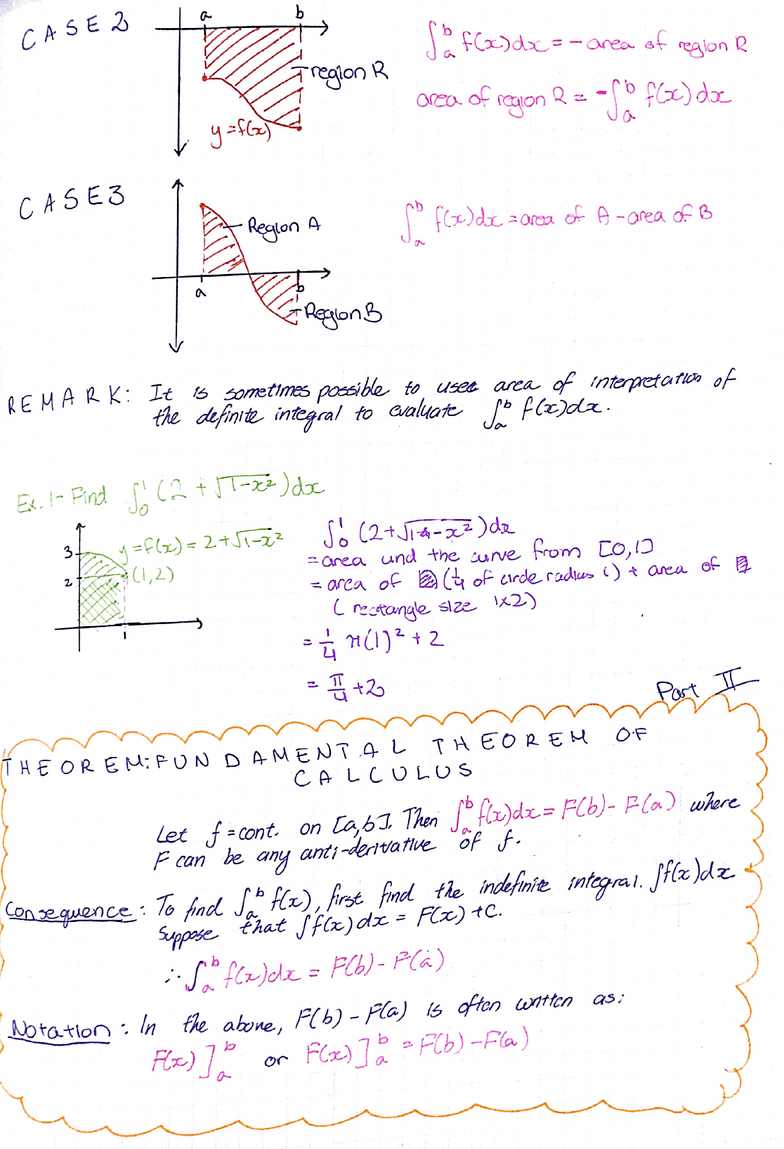 CASE 2
a b
region R
y=f(x)
∫ₐᵇ f(x)dx = - area of region R
area of region R = -∫ₐᵇ f(x)dx
CASE 3
Region A
a b
Region B
∫ₐᵇ f(x)dx = area of A - area of B
REMARK: It is sometimes possible to use area of interpretation of
the definite integral to evaluate ∫ₐᵇ f(x)dx.
Ex. 1- Find ∫₀¹ (2 + √1-x²)dx
3
y=f(x) = 2+√1-x²
2
(1,2)
1
∫₀¹ (2+√1-x²)dx
= area und the curve from [0,1]
= area of (1/4 of circle radius 1) + area of
(rectangle size 1x2)
= 1/4 π(1)² + 2
= π/4 + 2
Part II
THEOREM: FUNDAMENTAL THEOREM OF
CALCULUS
Let f = cont. on [a,b]. Then ∫ₐᵇ f(x)dx = F(b) - F(a) where
F can be any anti-derivative of f.
Consequence: To find ∫ₐᵇ f(x), first find the indefinite integral. ∫f(x)dx
suppose that ∫f(x)dx = F(x) + C.
∴ ∫ₐᵇ f(x)dx = F(b) - F(a)
Notation: In the above, F(b) - F(a) is often written as:
F(x)]ₐᵇ or F(x)]ₐᵇ = F(b) - F(a)